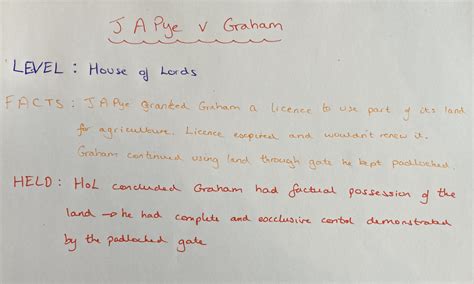 J A Pye v Graham
LEVEL : House of Lords
FACTS : J A Pye granted Graham a licence to use part of its land
for agriculture. Licence expired and wouldn't renew it.
Graham continued using land through gate he kept padlocked.
HELD : HoL concluded Graham had factual possession of the
land → he had complete and exclusive control demonstrated
by the padlocked gate